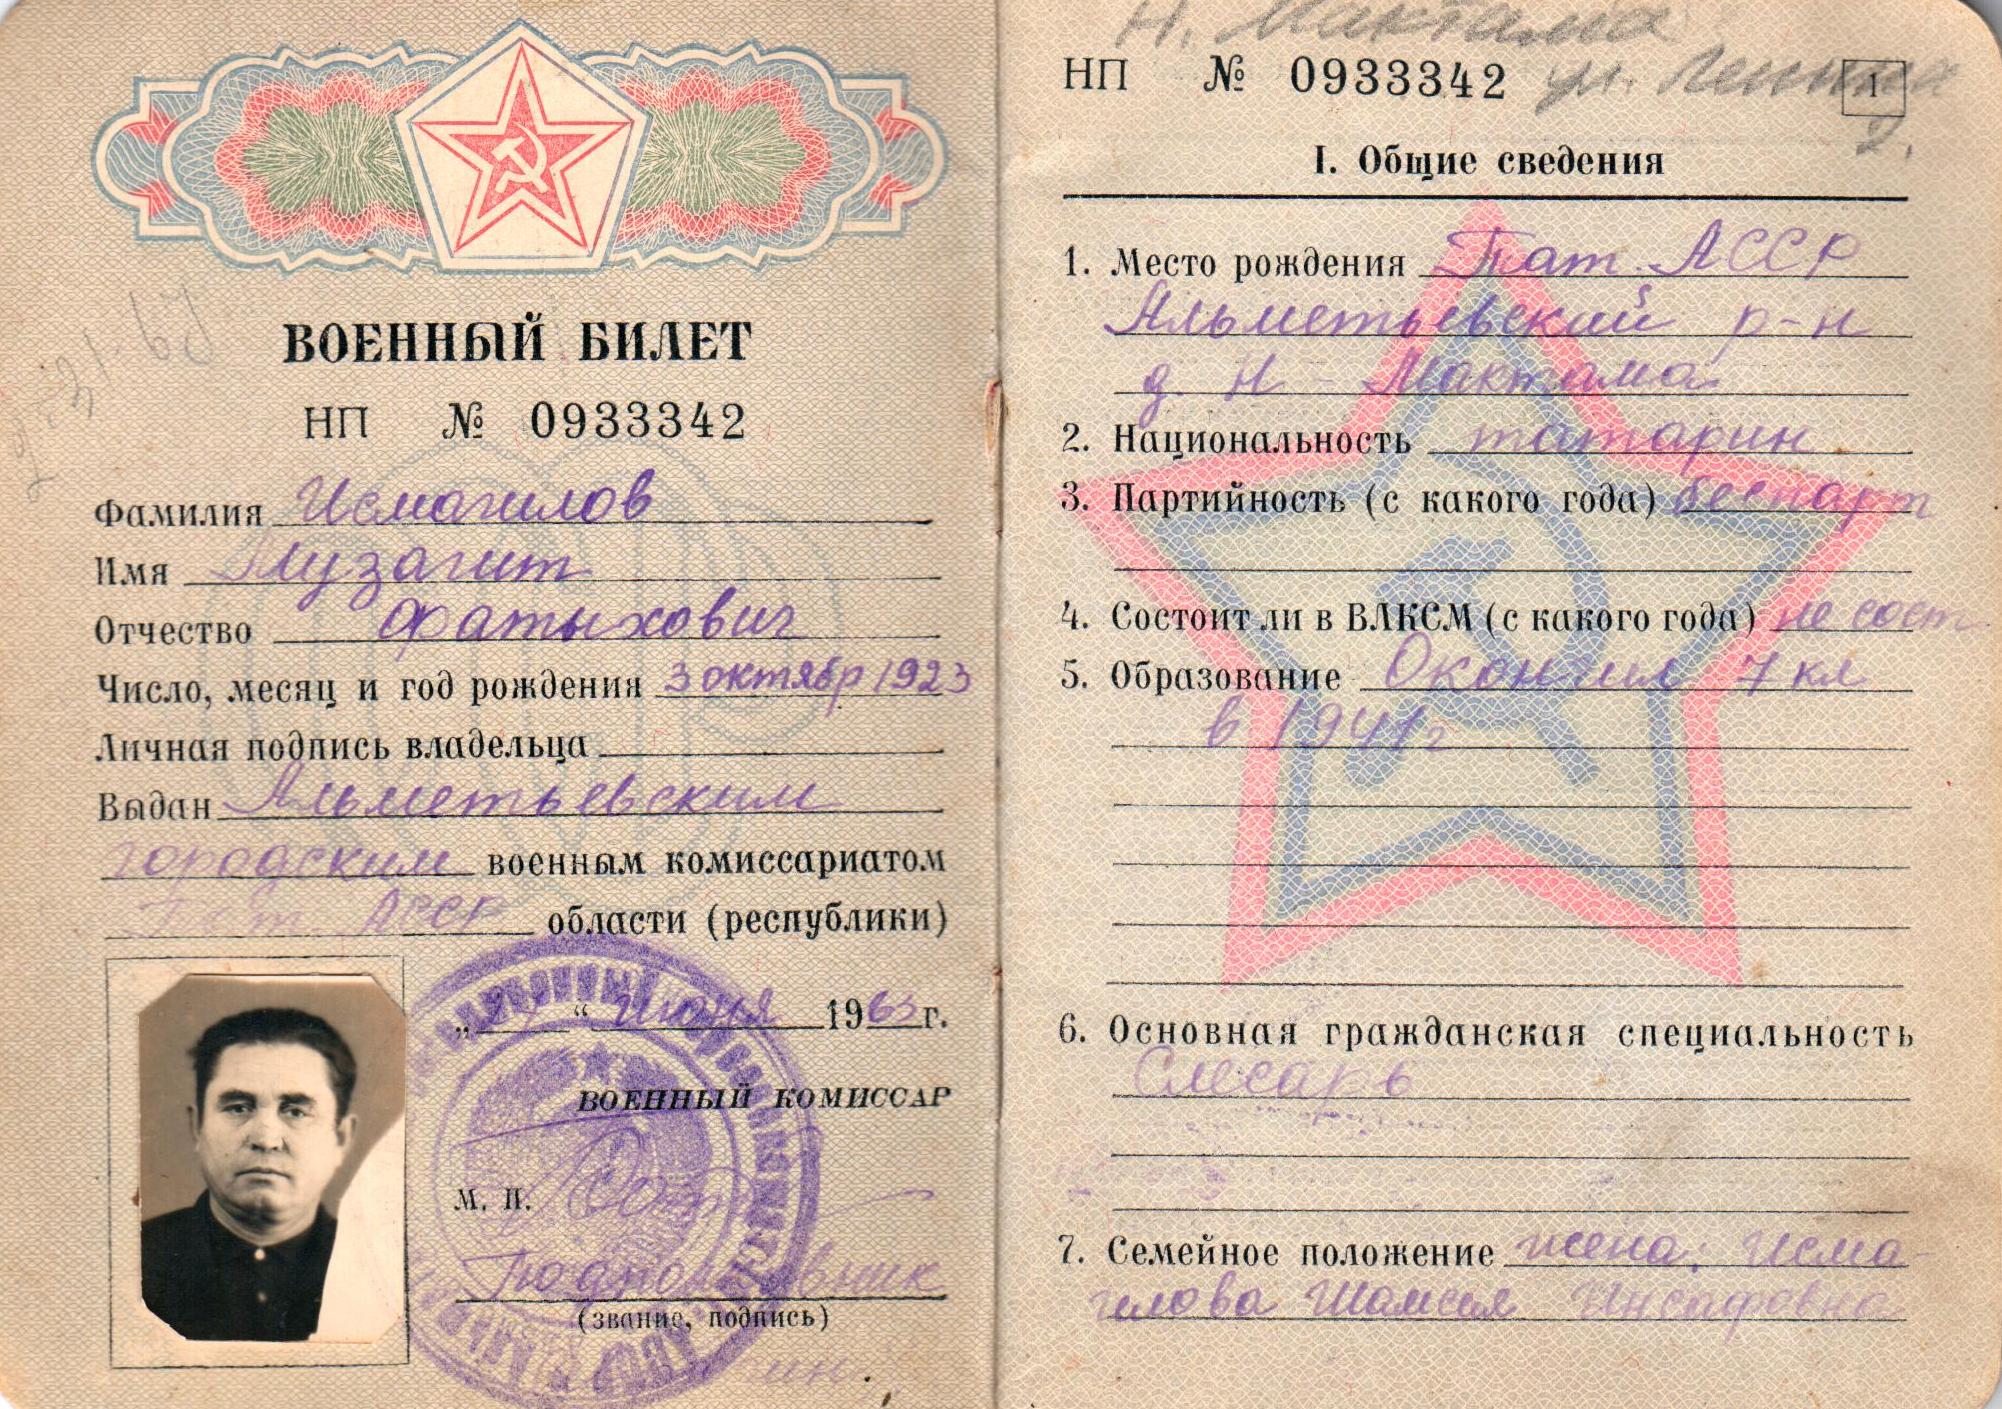 ВОЕННЫЙ БИЛЕТ
НП № 0933342
Фамилия Исмагилов
Имя Музагит
Отчество Фатыхович
Число, месяц и год рождения 3 октябр 1923
Личная подпись владельца
Выдан Альметьевским
городским военным комиссариатом
Тат. АССР области (республики)
„ “ июня 1963 г.
ВОЕННЫЙ КОМИССАР
М. П.
Подполковник
(звание, подпись)
Н. Мактама
НП № 0933342 ул. Ленина
1
I. Общие сведения
1. Место рождения Тат. АССР
Альметьевский р-н
д. Н-Мактама
2. Национальность татарин
3. Партийность (с какого года) беспарт
4. Состоит ли в ВЛКСМ (с какого года) не сост
5. Образование Окончил 7 кл
в 1941 г
6. Основная гражданская специальность
Слесарь
7. Семейное положение жена: Исма
гилова Шамсия Инсафовна